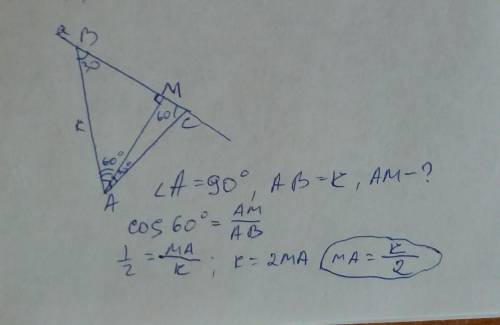 a B
30
M
60°
C
к
60°
A
∠A = 90°, AB = к, AM - ?
cos 60° = AM/AB
1/2 = MA/к ; к = 2MA MA = к/2